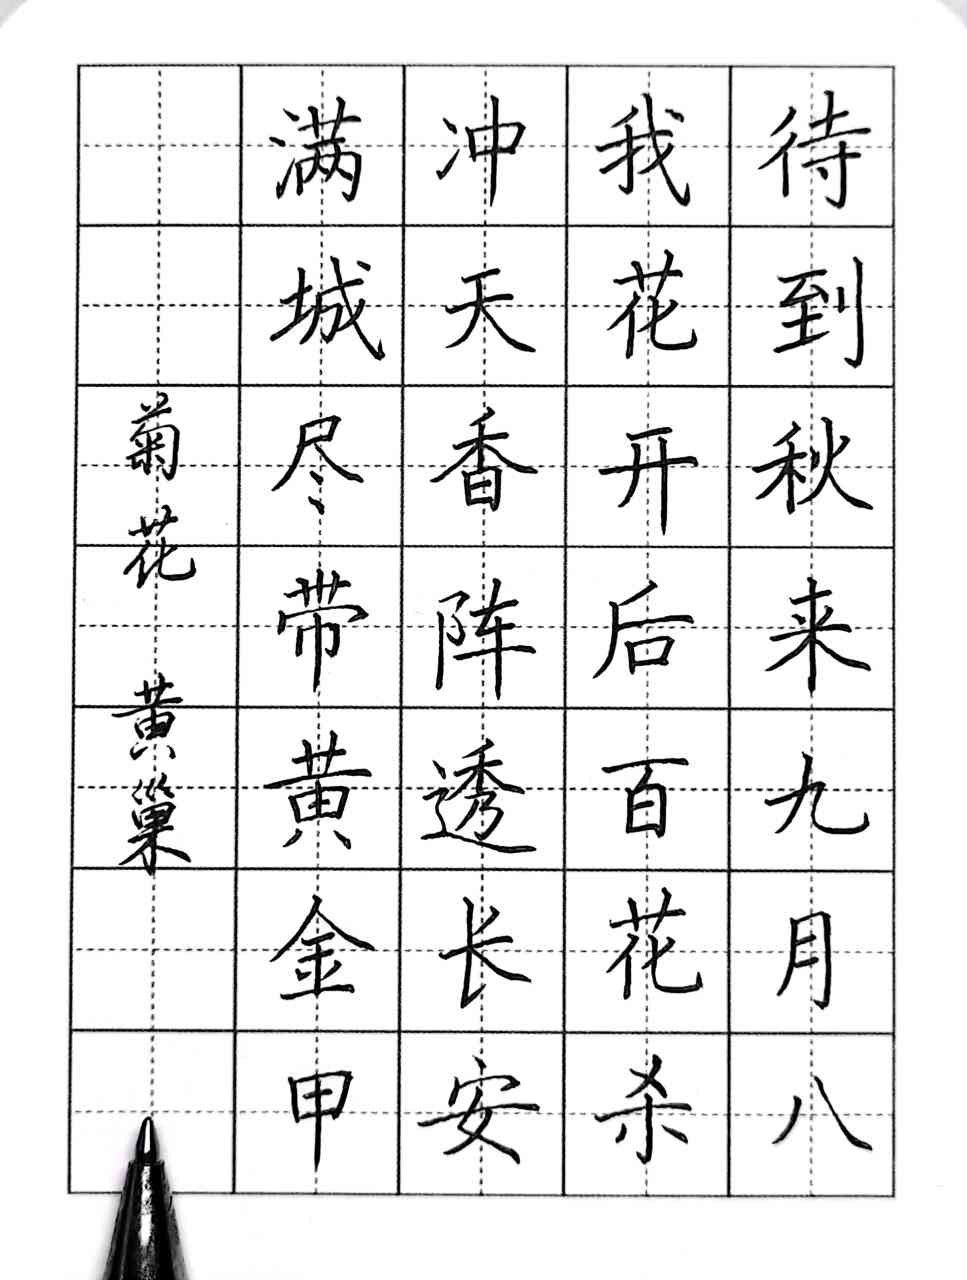 待到秋来九月八
我花开后百花杀
冲天香阵透长安
满城尽带黄金甲
菊花 黄巢